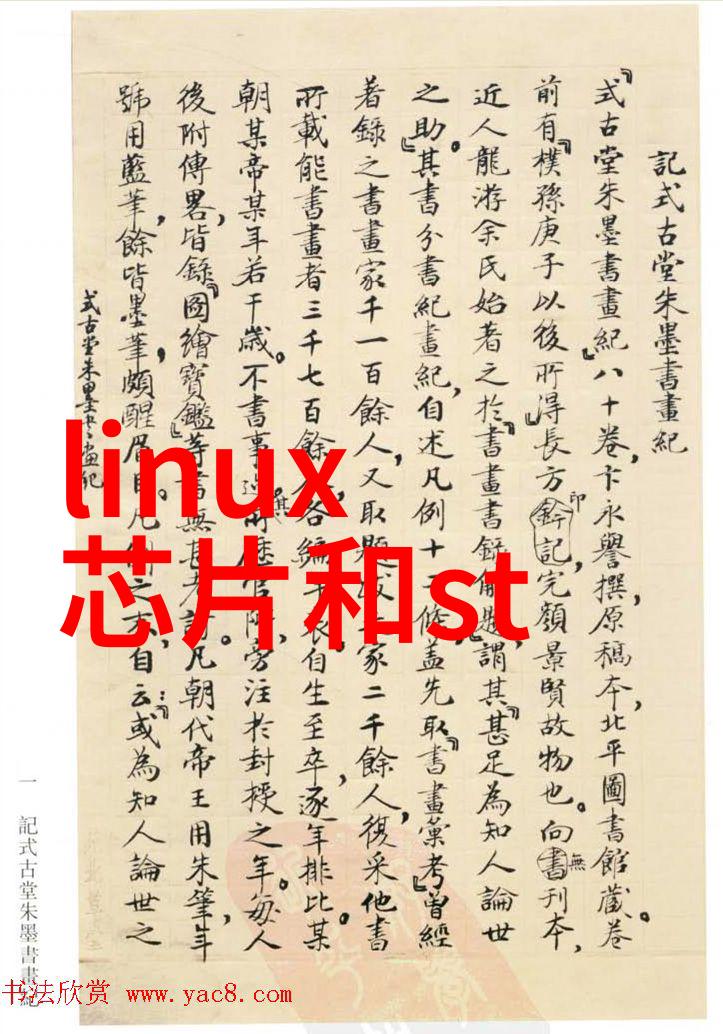 記式古堂朱墨書畫紀
『式古堂朱墨書畫紀』八十卷,卞永譽撰,原稿本,北平圖書館藏。卷
前有『樸孫庚子以後所得』長方印記,完顏景賢故物也。向無刊本,
近人龍游余氏始著之於『書畫書錄解題』,謂其『甚足為知人論世
之助。』其書分書紀畫紀,自述凡例十二條,蓋先取『書畫彙考』曾經
著錄之書畫家千一百餘人,又取題跋家二千餘人,復采他書
所載能書畫者三千七百餘人,各編年表,自生至卒,逐年排比。某
朝某帝某年若干歲。不書事,其所歷官階,旁注於封授之年。每人
後附傳畧,皆錄『圖繪寶鑑』等書,無甚考訂。凡朝代帝王用朱筆,年
號用藍筆,餘皆墨筆,頗醒眉目。凡例之末,自云:『或為知人論世之
式古堂朱墨書畫紀
一 記式古堂朱墨書畫紀
linux
芯片和st
书法欣赏 www.yac8.com